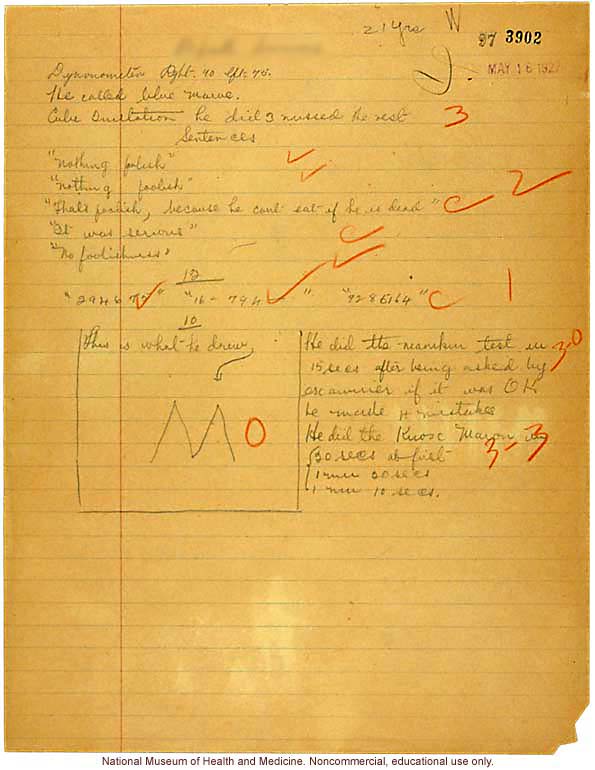 21 yrs W
97 3902
MAY 16 1927
Dynonometer Right. 90 left. 75.
He called blue mauve.
Cube he did 3 missed the rest 3
Sentences
"nothing foolish"
"nothing foolish" 2
"That's foolish, because he cant eat if he is dead" C
"It was serious" C
"No foolishness"
12
"294673" "16-794-" "9286164" C 1
10
This is what he drew
0
He did the manikin test in 3-0
15 secs after being asked by
examiner if it was OK
he made 4 mistakes
He did the Knox 3-3
30 secs at first
1 min 30 secs
1 min 10 secs.
National Museum of Health and Medicine. Noncommercial, educational use only.